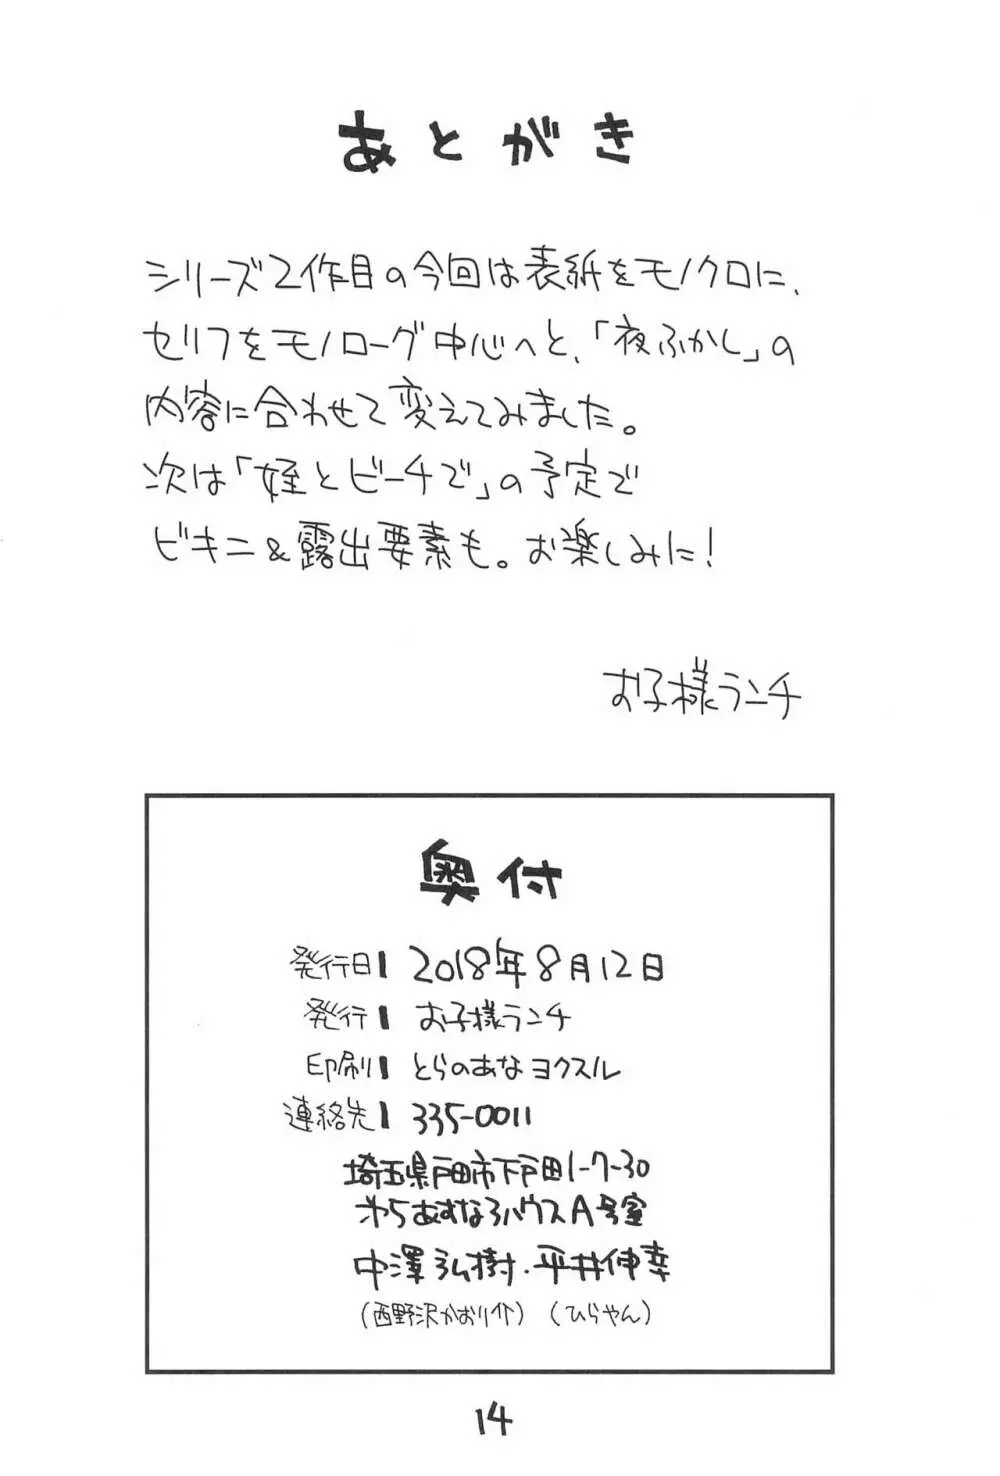 あとがき
シリーズ2作目の今回は表紙をモノクロに、
セリフをモノローグ中心へと、「夜ふかし」の
内容に合わせて変えてみました。
次は「姪とビーチで」の予定で
ビキニ&露出要素も。お楽しみに!
お子様ランチ
奥付
発行日| 2018年8月12日
発行| お子様ランチ
印刷| とらのあなヨクスル
連絡先| 335-0011
埼玉県戸田市下戸田1-7-30
第5あすなろハウスA号室
中澤弘樹・平井伸幸
(西野沢かおり介) (ひらやん)
14